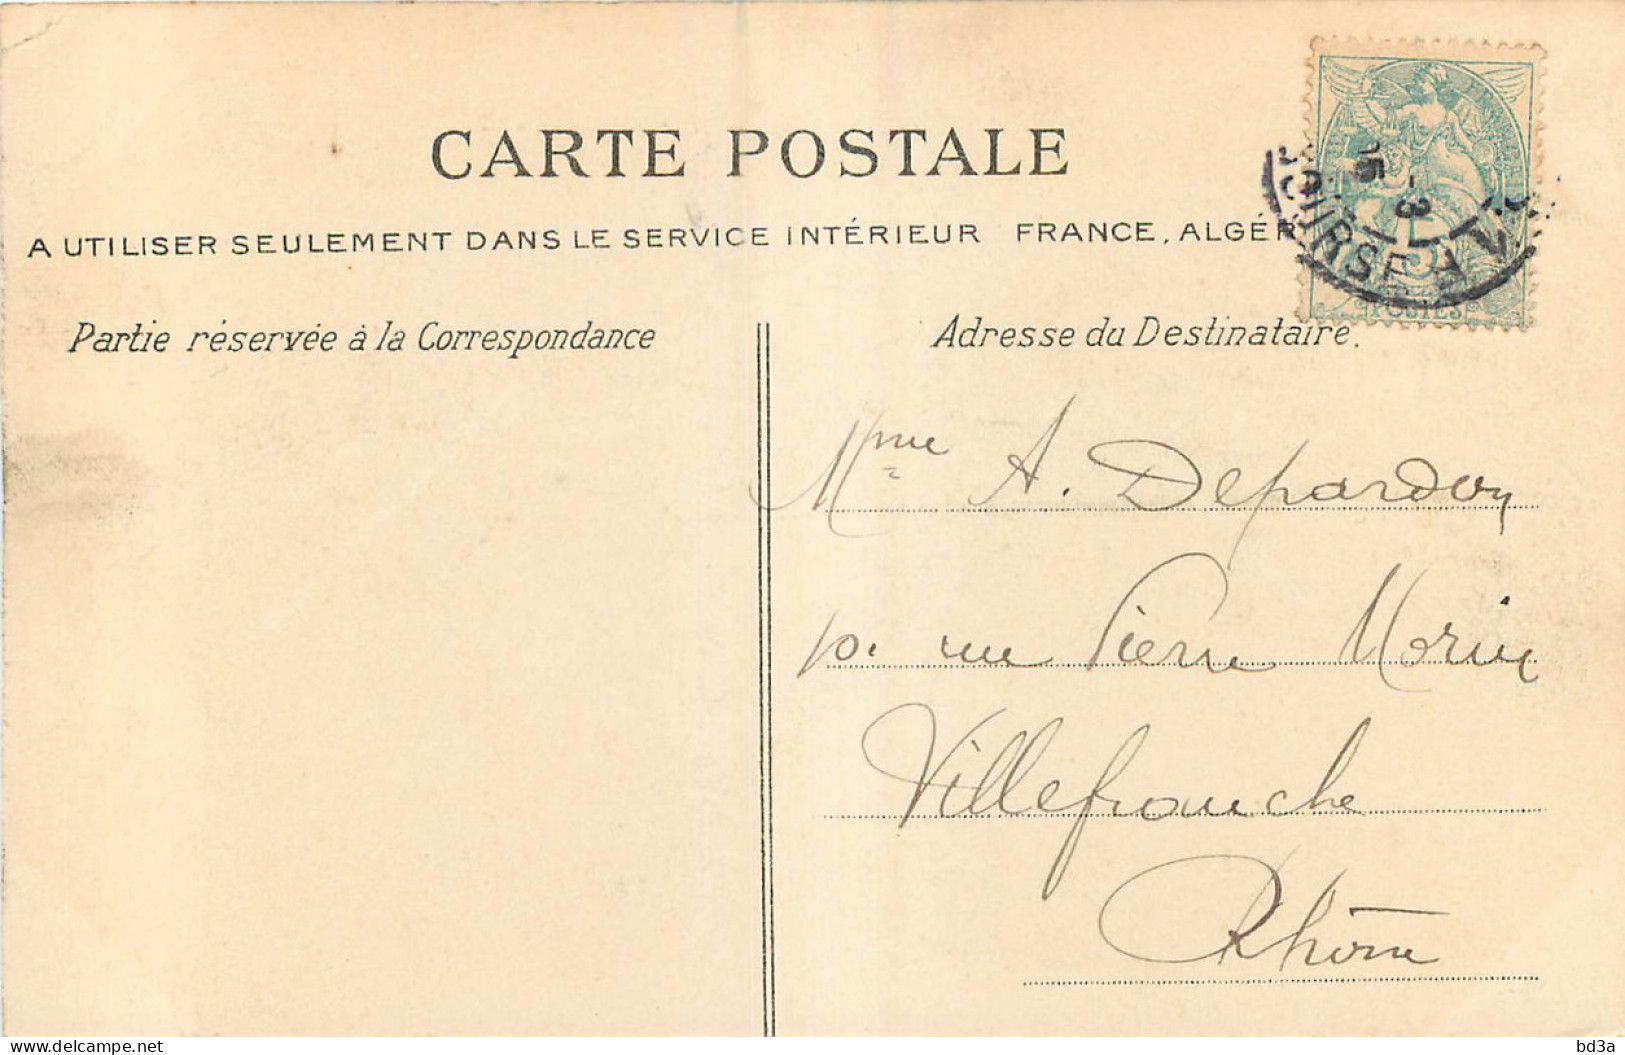 CARTE POSTALE
A UTILISER SEULEMENT DANS LE SERVICE INTÉRIEUR FRANCE, ALGÉR
Partie réservée à la Correspondance
Adresse du Destinataire.
5
-3
POSTES
Mme A. Depardon
p. rue Pierre Morin
Villefranche
Rhône
delcampe.net
bd3a